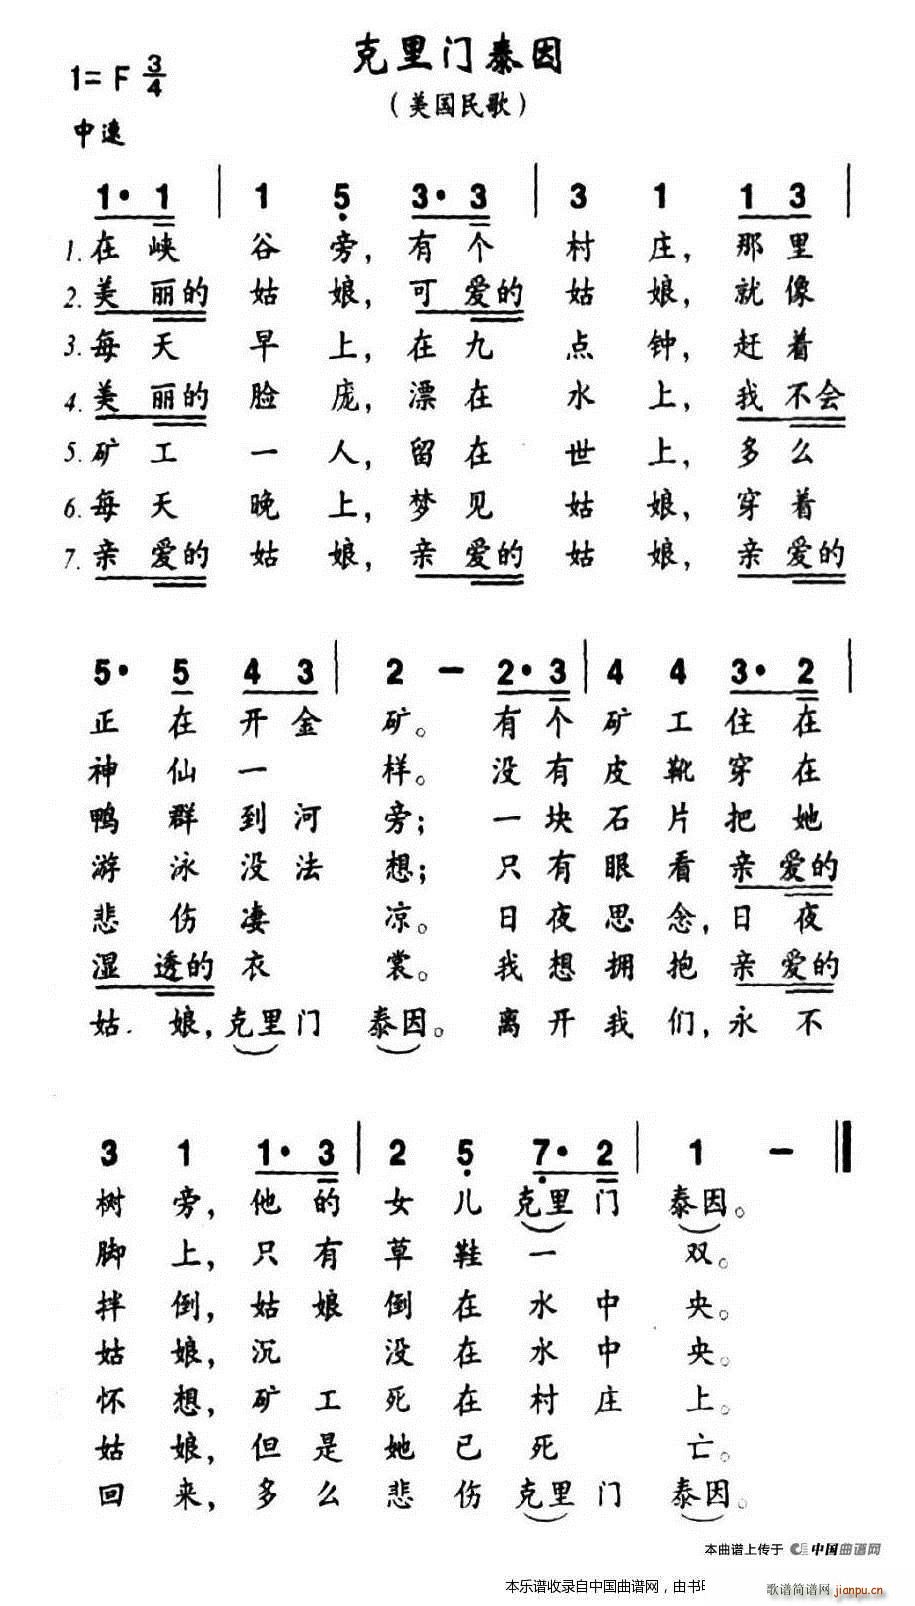 克里门泰因
1=F 3/4
（美国民歌）
中速
1· 1 | 1 5 3· 3 | 3 1 1 3 |
1. 在 峡 谷 旁，有 个 村 庄，那 里
2. 美 丽的 姑 娘，可 爱的 姑 娘，就 像
3. 每 天 早 上，在 九 点 钟，赶 着
4. 美 丽的 脸 庞，漂 在 水 上，我 不会
5. 矿 工 一 人，留 在 世 上，多 么
6. 每 天 晚 上，梦 见 姑 娘，穿 着
7. 亲 爱的 姑 娘，亲 爱的 姑 娘，亲 爱的
5· 5 4 3 | 2 － 2· 3 | 4 4 3· 2 |
正 在 开 金 矿。 有 个 矿 工 住 在
神 仙 一 样。 没 有 皮 靴 穿 在
鸭 群 到 河 旁； 一 块 石 片 把 她
游 泳 没 法 想； 只 有 眼 看 亲 爱的
悲 伤 凄 凉。 日 夜 思 念，日 夜
湿 透的 衣 裳。 我 想 拥 抱 亲 爱的
姑. 娘，克里门 泰因。 离 开 我 们，永 不
3 1 1· 3 | 2 5 7· 2 | 1 － ‖
树 旁，他 的 女 儿 克里门 泰因。
脚 上，只 有 草 鞋 一 双。
拌 倒，姑 娘 倒 在 水 中 央。
姑 娘，沉 没 在 水 中 央。
怀 想，矿 工 死 在 村 庄 上。
姑 娘，但 是 她 已 死 亡。
回 来，多 么 悲 伤 克里门 泰因。
本曲谱上传于 中国曲谱网
本乐谱收录自中国曲谱网，由书
歌谱简谱网 jianpu.cn